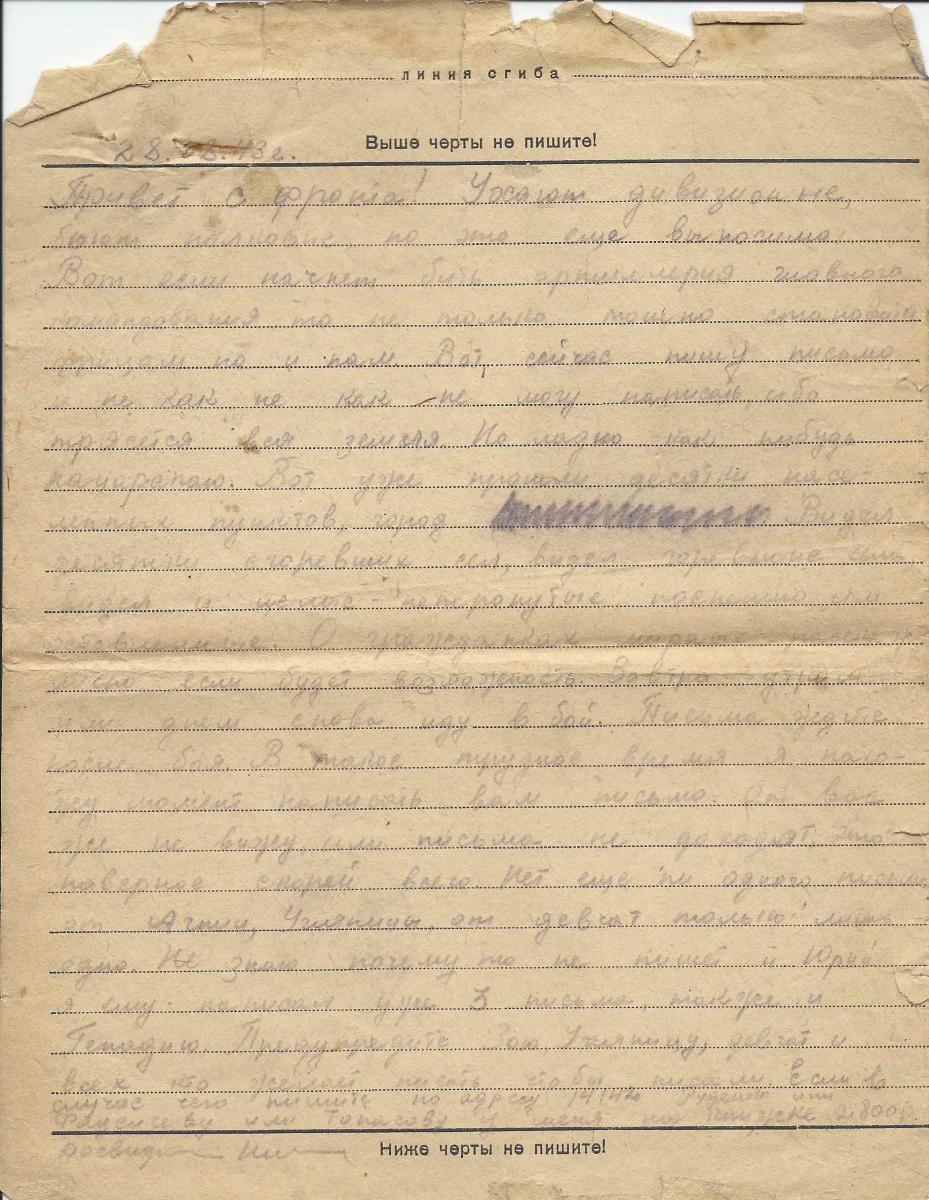 линия сгиба
28. 08. 43 г. Выше черты не пишите!
Привет с фронта! Ухают дивизионные,
бьют полковые, но это еще выносимо.
Вот если начнет бить артиллерия главного
командования то не только тошно становится
фрицам но и нам. Вот, сейчас пишу письмо
и не как не как не могу написать, ибо
трясется вся земля. Но ладно как нибудь
нацарапаю. Вот уже прошли десятки насе-
ленных пунктов, город Видел
десятки сгоревших сел, видел горевшие села
видел и целые - нетронутые поспешно им
оставленные. О гражданах мирных
если будет возможность. Завтра утром
или днем снова иду в бой. Письма ждите
после боя. В такое трудное время я нахо-
жу момент написать вам письмо. От вас
же не вижу, или письма не доходят, это
наверное скорей всего. Нет еще ни одного письма
от Агнии, Ульяницы, от девчат только лишь
одно. Не знаю почему то не пишет и Юрий
я ему написал уже 3 письма, также и
Генадию. Предупредите Зою, девчат и
всех кто желает писать чтобы писали. Если в
случае чего пишите по адресу или
или у меня на 2800 р.
Ниже черты не пишите!